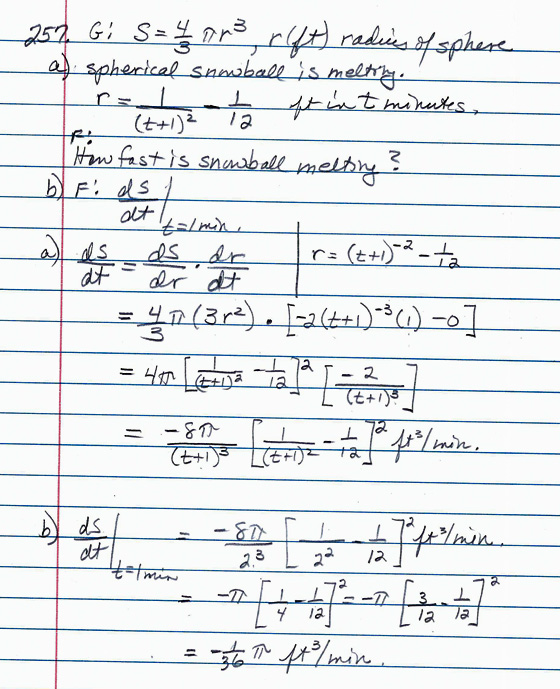 257. G: S = 4/3 πr³, r(ft) radius of sphere
a) spherical snowball is melting.
r = 1/(t+1)² - 1/12 ft in t minutes.
F:
How fast is snowball melting?
b) F: ds/dt |t=1 min.
a) ds/dt = ds/dr · dr/dt | r = (t+1)⁻² - 1/12
= 4/3 π(3r²) · [-2(t+1)⁻³(1) - 0]
= 4π [1/(t+1)² - 1/12]² [-2/(t+1)³]
= -8π/(t+1)³ [1/(t+1)² - 1/12]² ft³/min.
b) ds/dt |t=1 min = -8π/2³ [1/2² - 1/12]² ft³/min.
= -π [1/4 - 1/12]² = -π [3/12 - 1/12]²
= -1/36 π ft³/min.